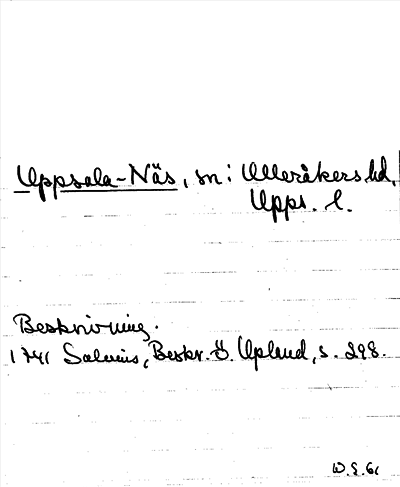 Uppsala-Näs, sn i Ulleråkers hd,
Upps. l.
Beskrivning.
1741 Salvius, Beskr. ö. Upland, s. 298.
W.G. 61